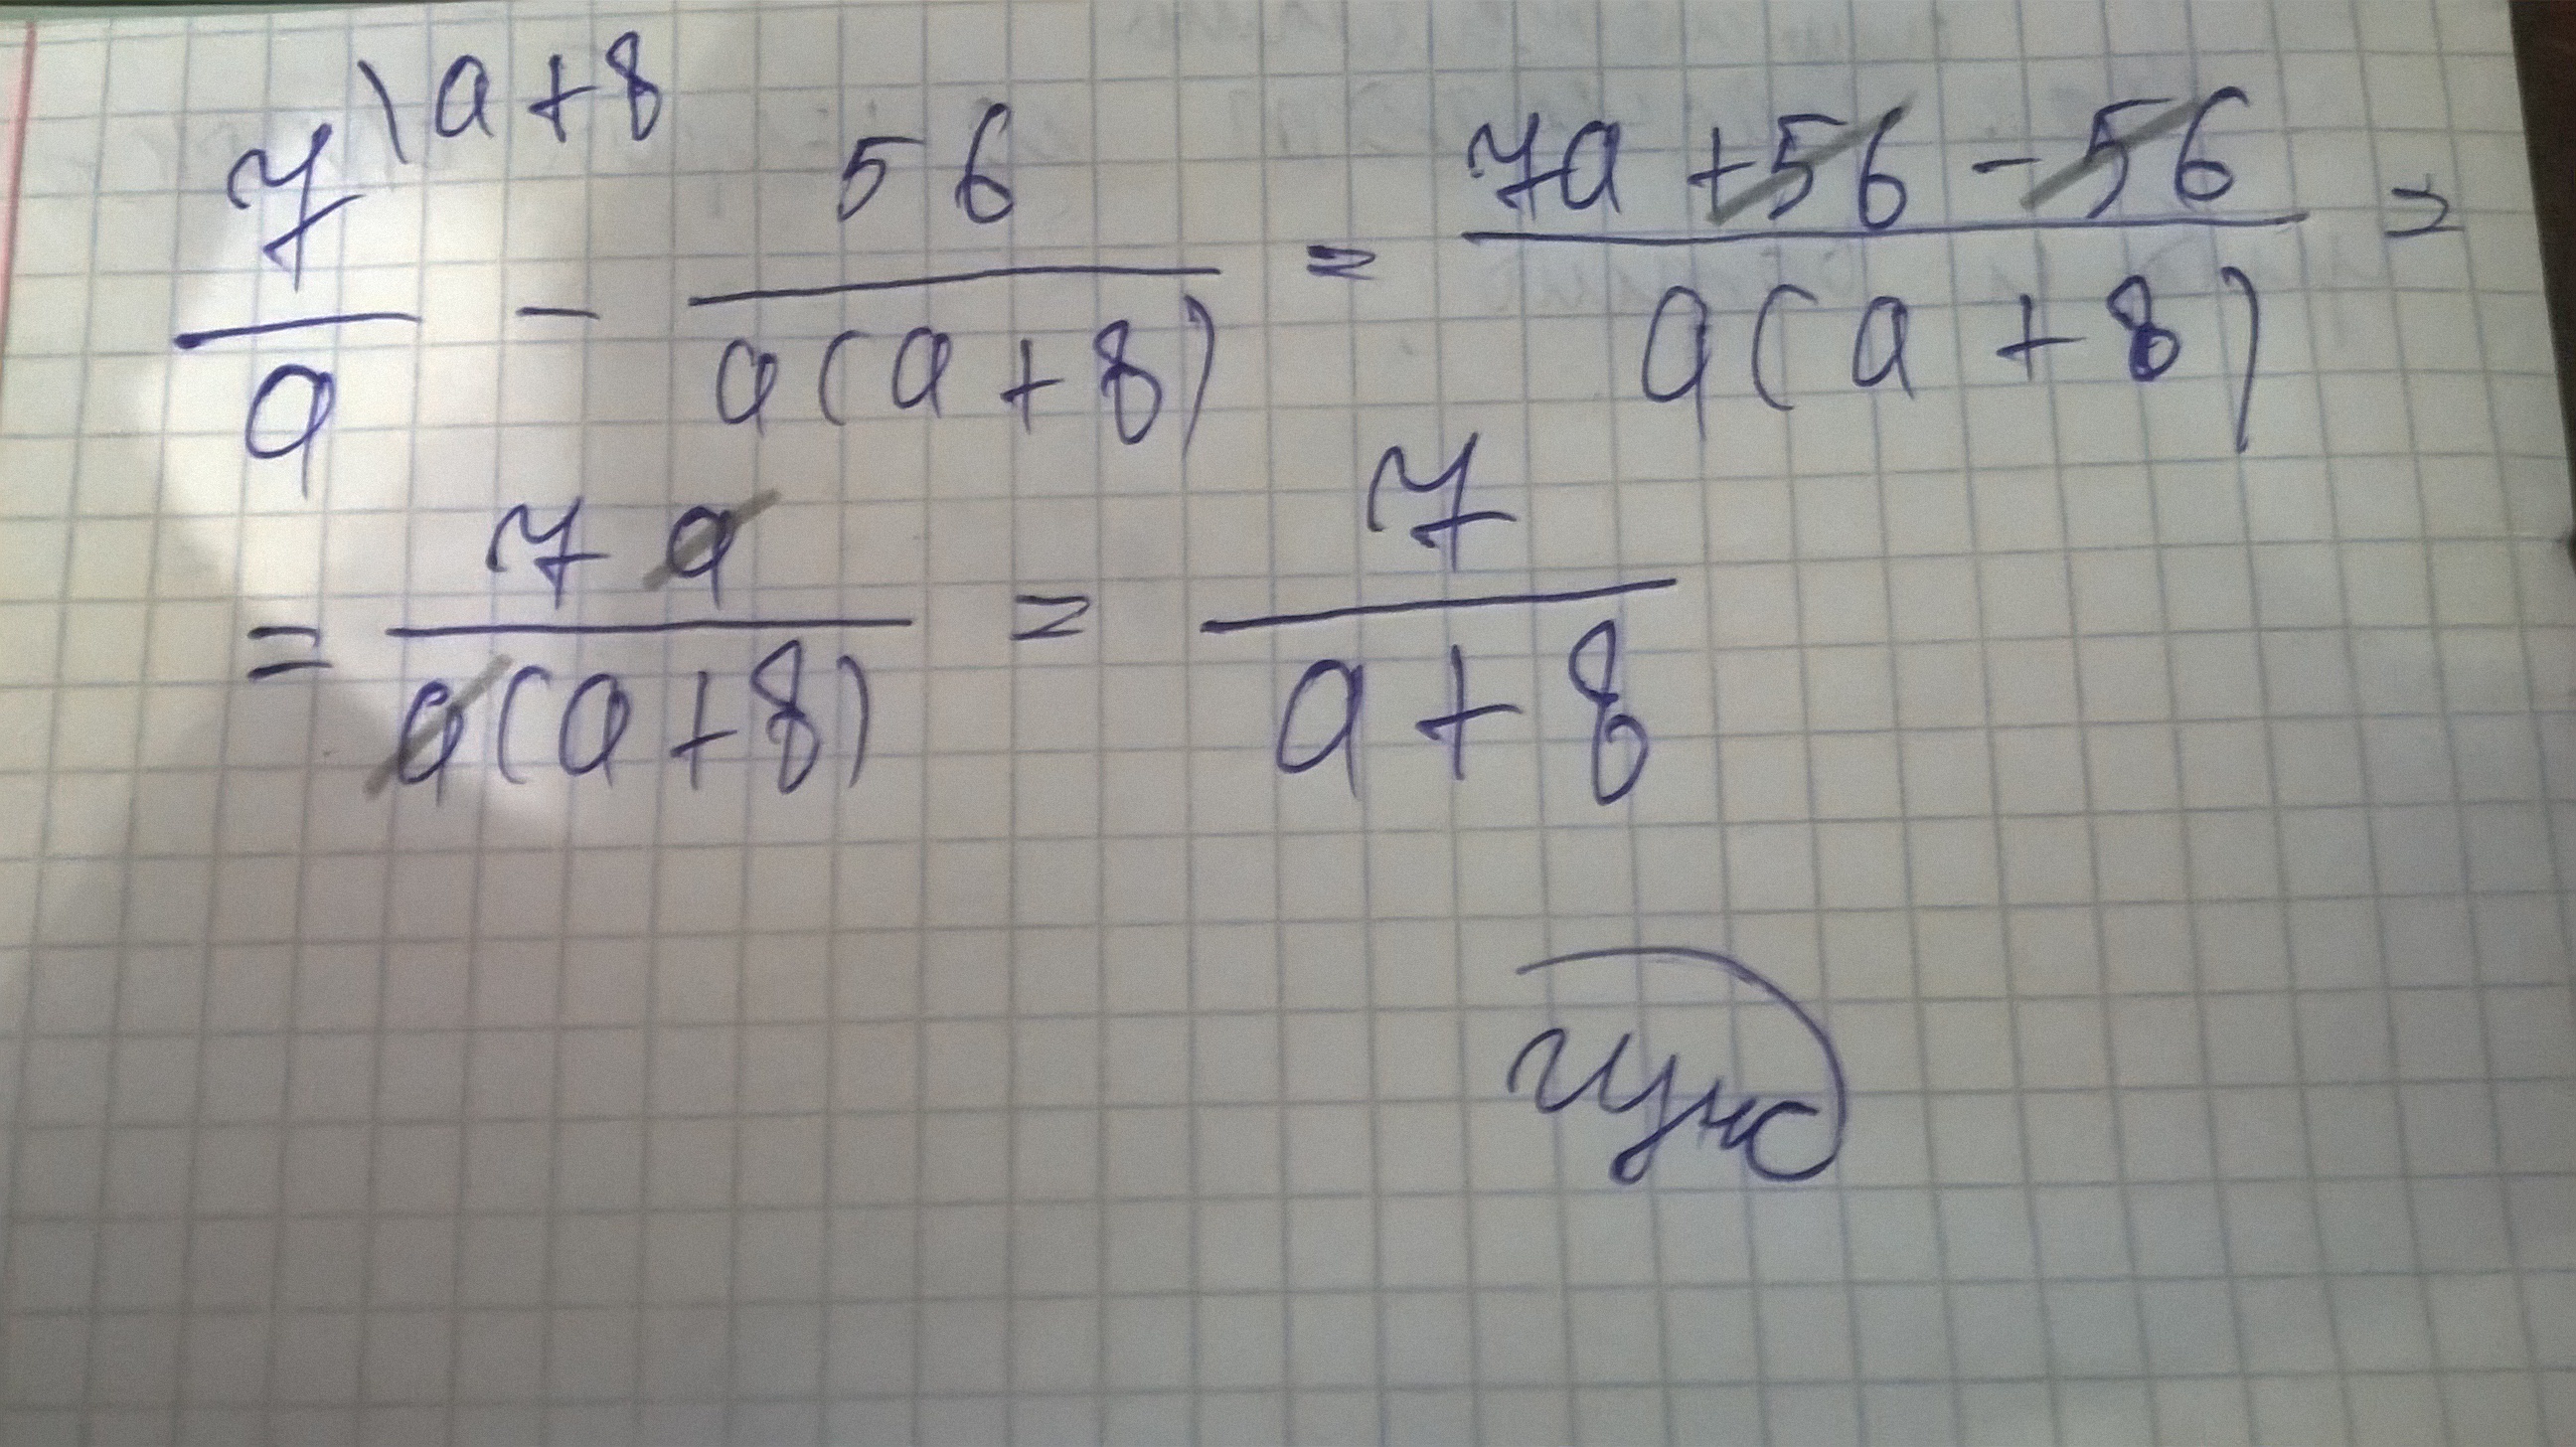 7\a+8/a - 56/a(a+8) = 7a+56-56/a(a+8) =
= 7a/a(a+8) = 7/a+8